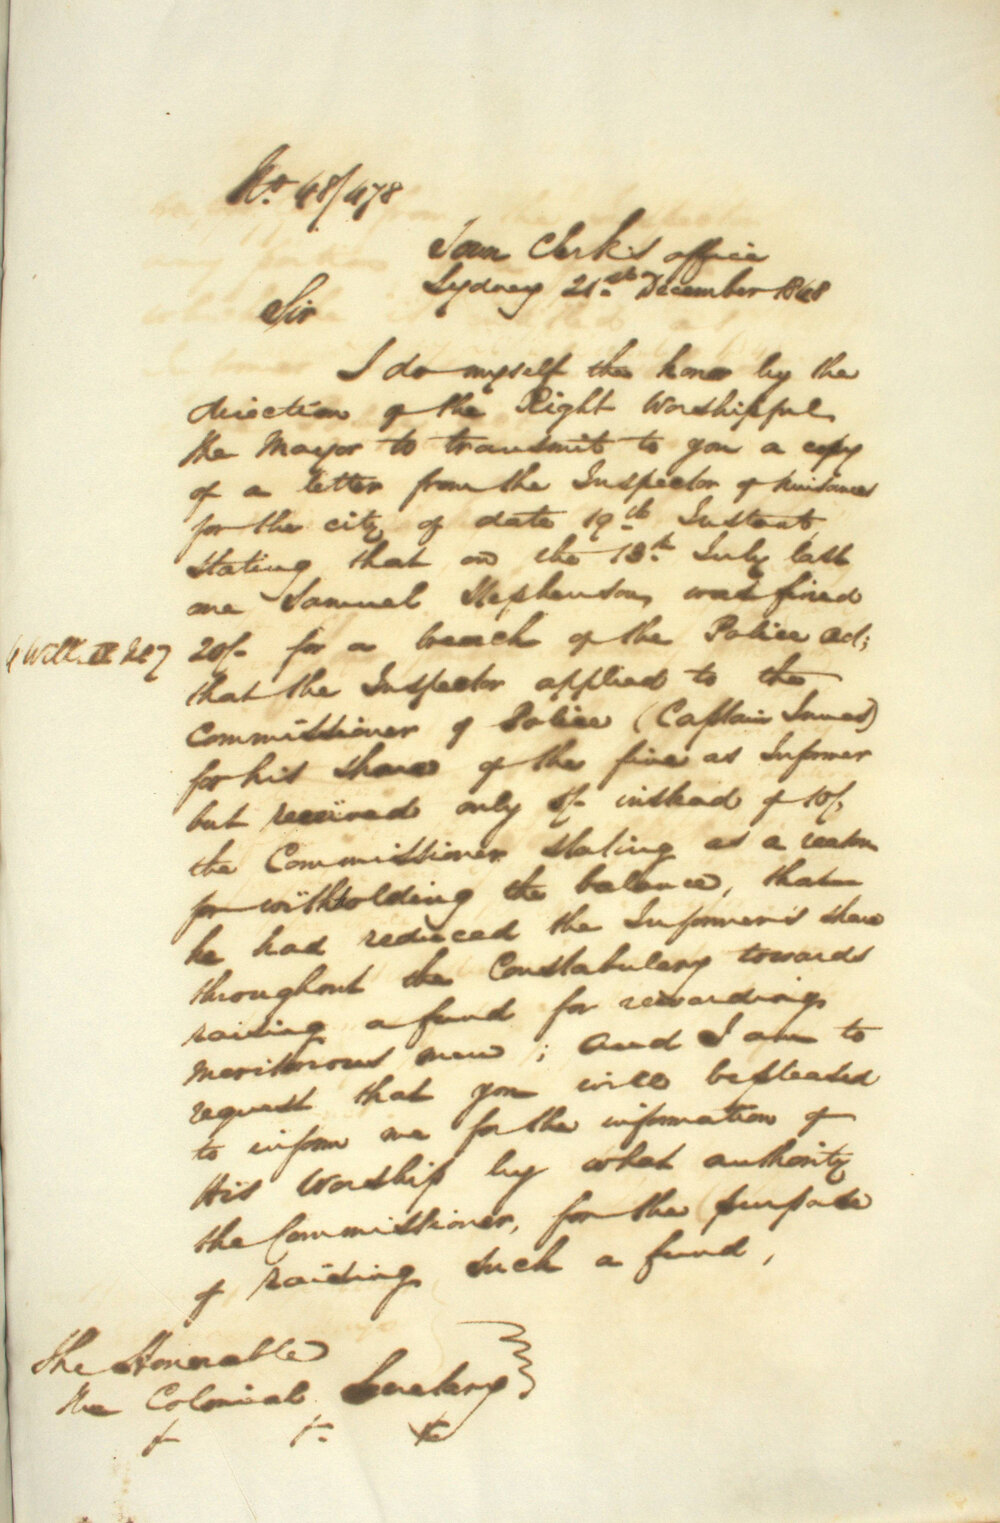 No. 48/478
Town Clerk's office
Sydney 21st December 1848
Sir
I do myself the honor by the
direction of the Right Worshipful
the Mayor to transmit to you a copy
of a letter from the Inspector of Nuisances
for the city of date 19th Instant,
stating that on the 13th July last
one Samuel Stephenson, was fined
20/- for a breach of the Police Act;
that the Inspector applied to the
Commissioner of Police (Captain Innes)
for his share of the fine as Informer
but received only 5/- instead of 10/-,
the Commissioner stating as a reason
for withholding the balance, that
he had reduced the Informer's share
throughout the Constabulary towards
raising a fund for rewarding
meritorious men; and I am to
request that you will be pleased
to inform me for the information of
His Worship by what authority
the Commissioner, for the purpose
of raising such a fund,
The Honorable
the Colonial Secretary